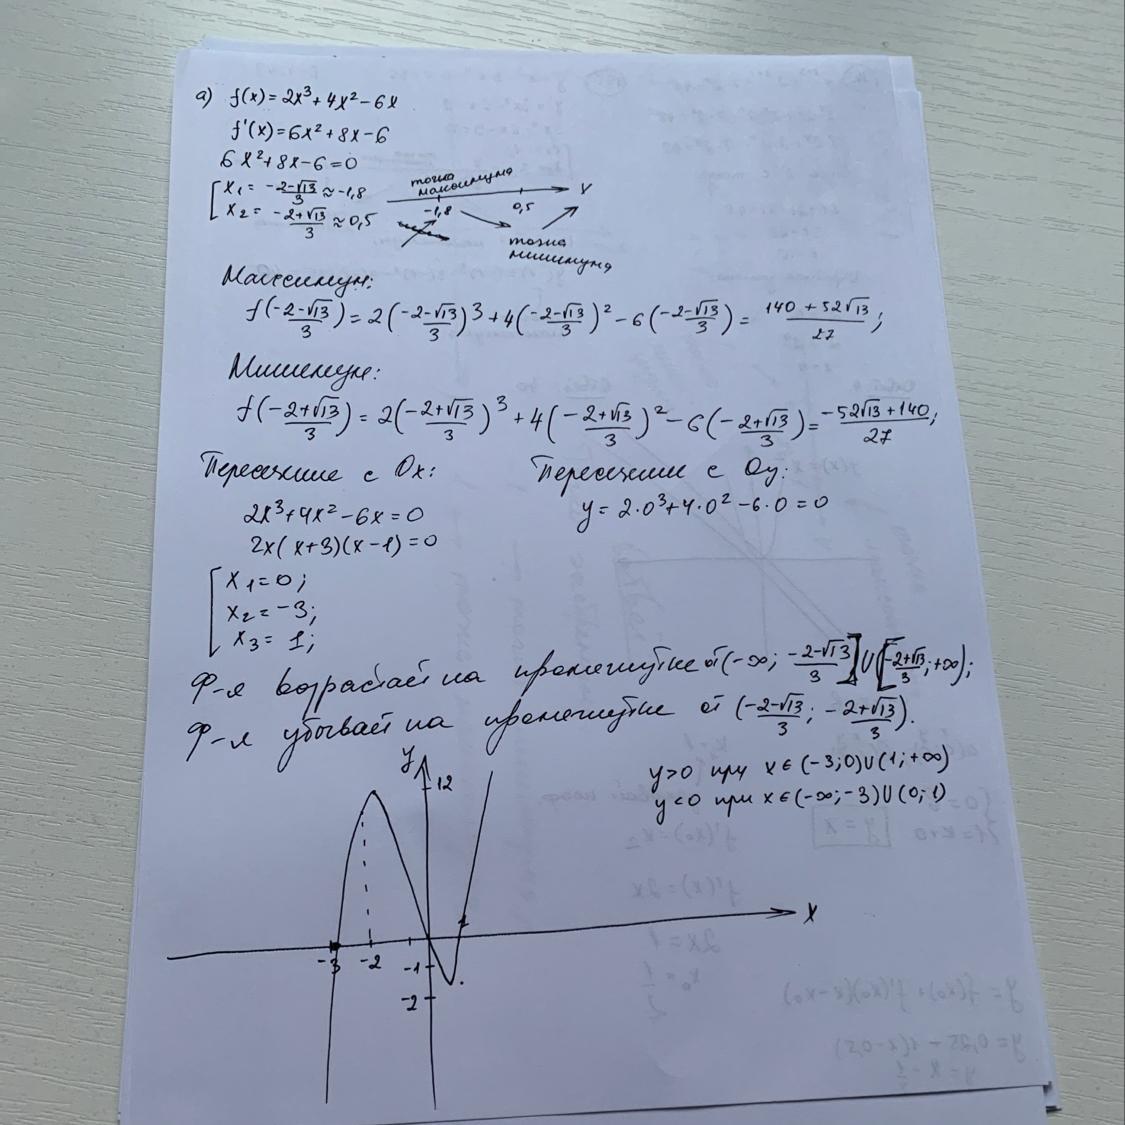 а) f(x) = 2x³ + 4x² - 6x
f'(x) = 6x² + 8x - 6
6x² + 8x - 6 = 0
x₁ = (-2-√13)/3 ≈ -1,8
x₂ = (-2+√13)/3 ≈ 0,5
точка
максимума
-1,8 0,5
точка
минимума
Максимум:
f((-2-√13)/3) = 2((-2-√13)/3)³ + 4((-2-√13)/3)² - 6((-2-√13)/3) = (140 + 52√13)/27;
Минимум:
f((-2+√13)/3) = 2((-2+√13)/3)³ + 4((-2+√13)/3)² - 6((-2+√13)/3) = (-52√13 + 140)/27;
Пересечение с Ox: Пересечение с Oy:
2x³ + 4x² - 6x = 0 y = 2·0³ + 4·0² - 6·0 = 0
2x(x+3)(x-1) = 0
x₁ = 0;
x₂ = -3;
x₃ = 1;
Ф-я возрастает на промежутке от (-∞; (-2-√13)/3] U [(-2+√13)/3; +∞);
Ф-я убывает на промежутке от ((-2-√13)/3; (-2+√13)/3).
y>0 при x ∈ (-3; 0) U (1; +∞)
y<0 при x ∈ (-∞; -3) U (0; 1)
y
12
x
1
-3 -2 -1
-2